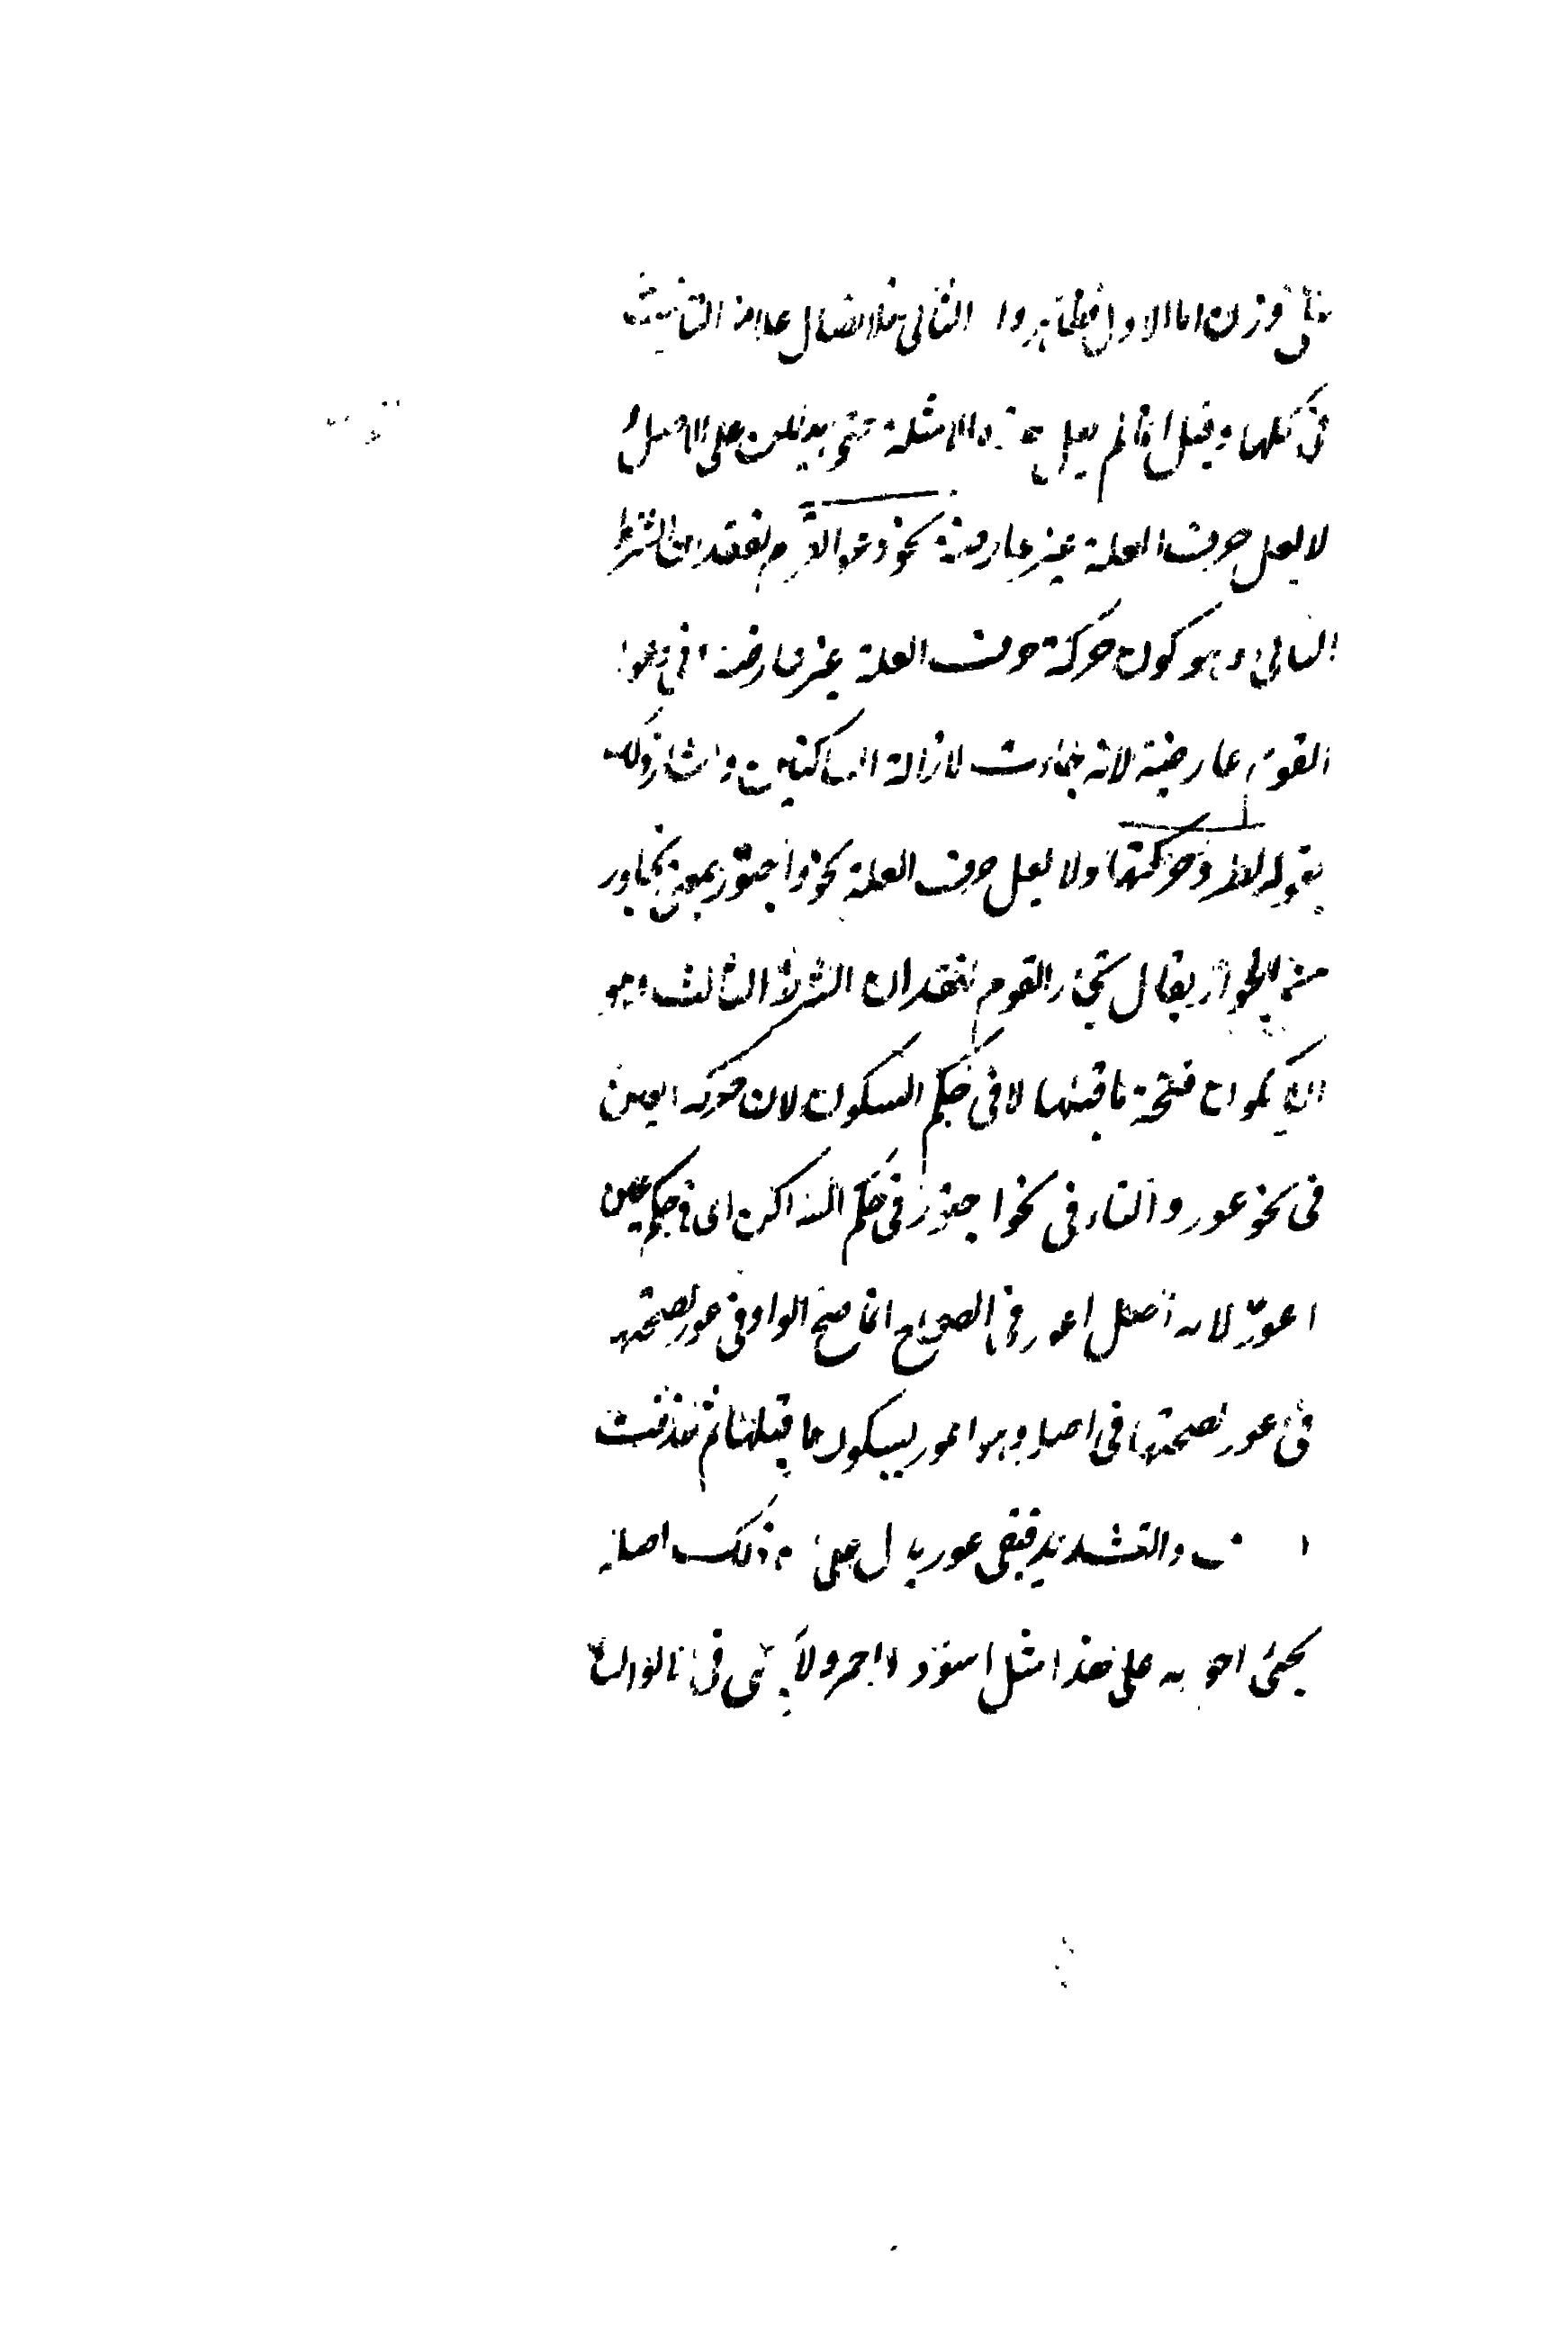 على وزن اما الاول فظاهر وا الثانى فلاتصال علامة التانيث
فى كلها وقيل انما لم يعل هذه الامثلة حتى يدللن على الاصل
لا يعل حرف العلة غير عارضة نحو دعوا القوم لفقدان الشرط
الثانى وهو كون حركة حرف العلة غير عارضة اذ فى دعوا
القوم عارضية لانه جاءت لازالة الساكنين واشار ذلك
بقوله لطرو حركتها ولا يعل حرف العلة نحو واجتور بمعنى تجاور
من الجوار يقال تجاور القوم لفقدان الشرط الثالث وهو
ان يكون فتحة ما قبلها لا فى حكم السكون لان حركة العين
فى نحو عور والتاء فى نحو اجتور فى حكم الساكن اى فى حكم عين
اعور لانه اصل اعور فى الصحاح انما صح الواو فى عور لصحتها
فى عور لصحتها فى اصله وهو اعور بسكون ما قبلها ثم حذفت
والتشديد فبقى عور يدل على ذلك اصله
يجئ اخو به على هذا مثل اسود واحمر ولا فى قالوا